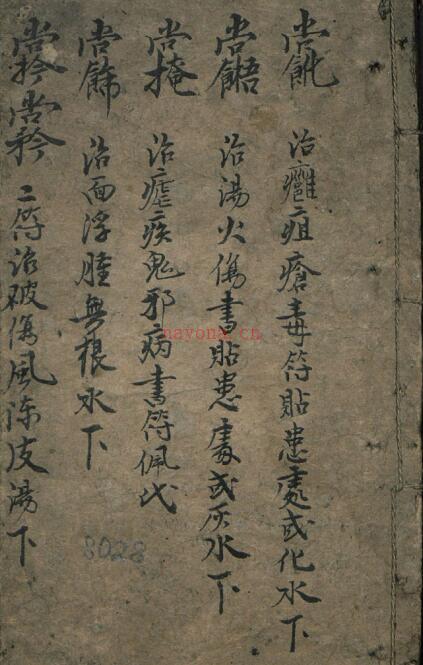 治癰疽瘡毒符貼患處或化水下
治湯火傷書貼患處或灰水下
治瘧疾鬼邪病書符佩代
治面浮腫無根水下
二符治破傷風陳皮湯下
nayona.cn
8028